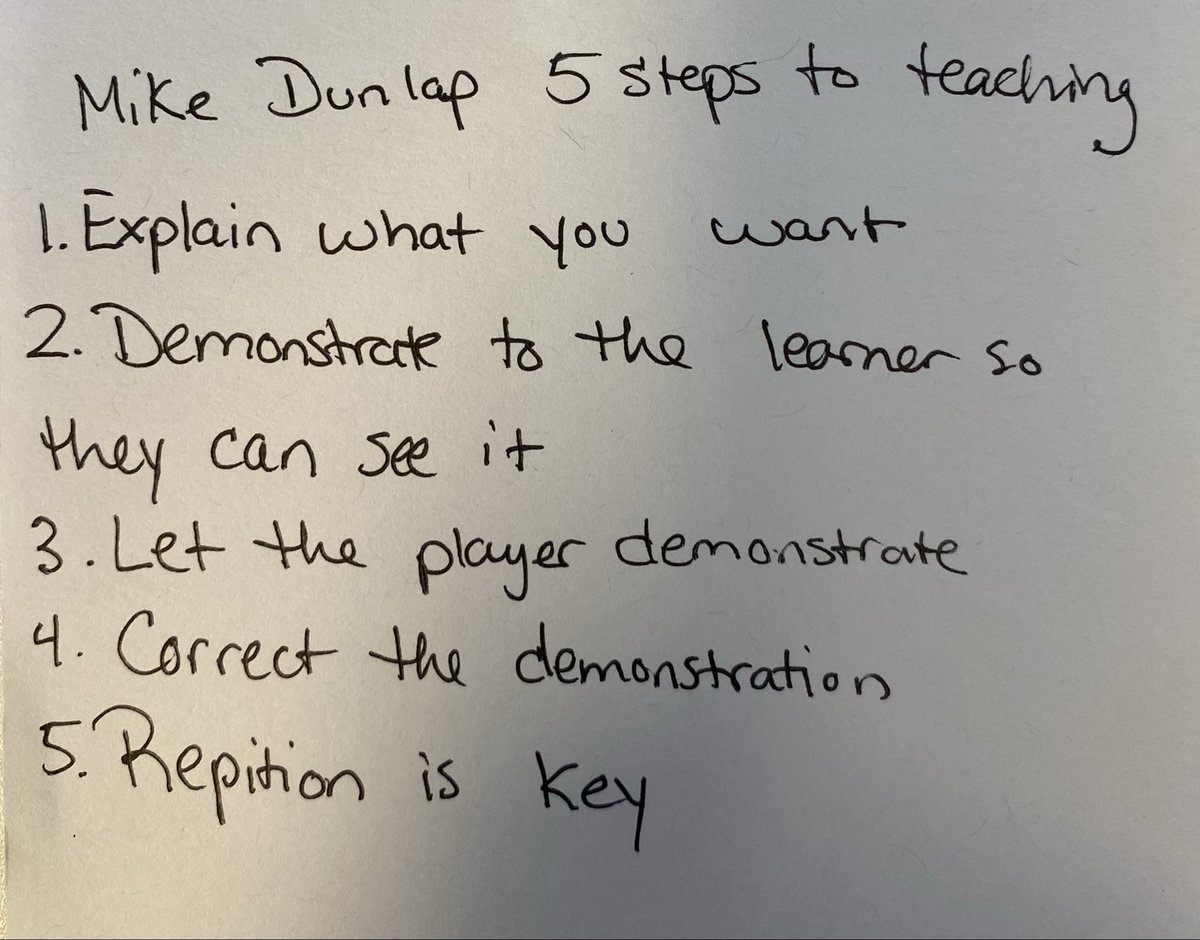 Mike Dunlap 5 steps to teaching
1. Explain what you want
2. Demonstrate to the learner so
they can see it
3. Let the player demonstrate
4. Correct the demonstration
5. Repition is key